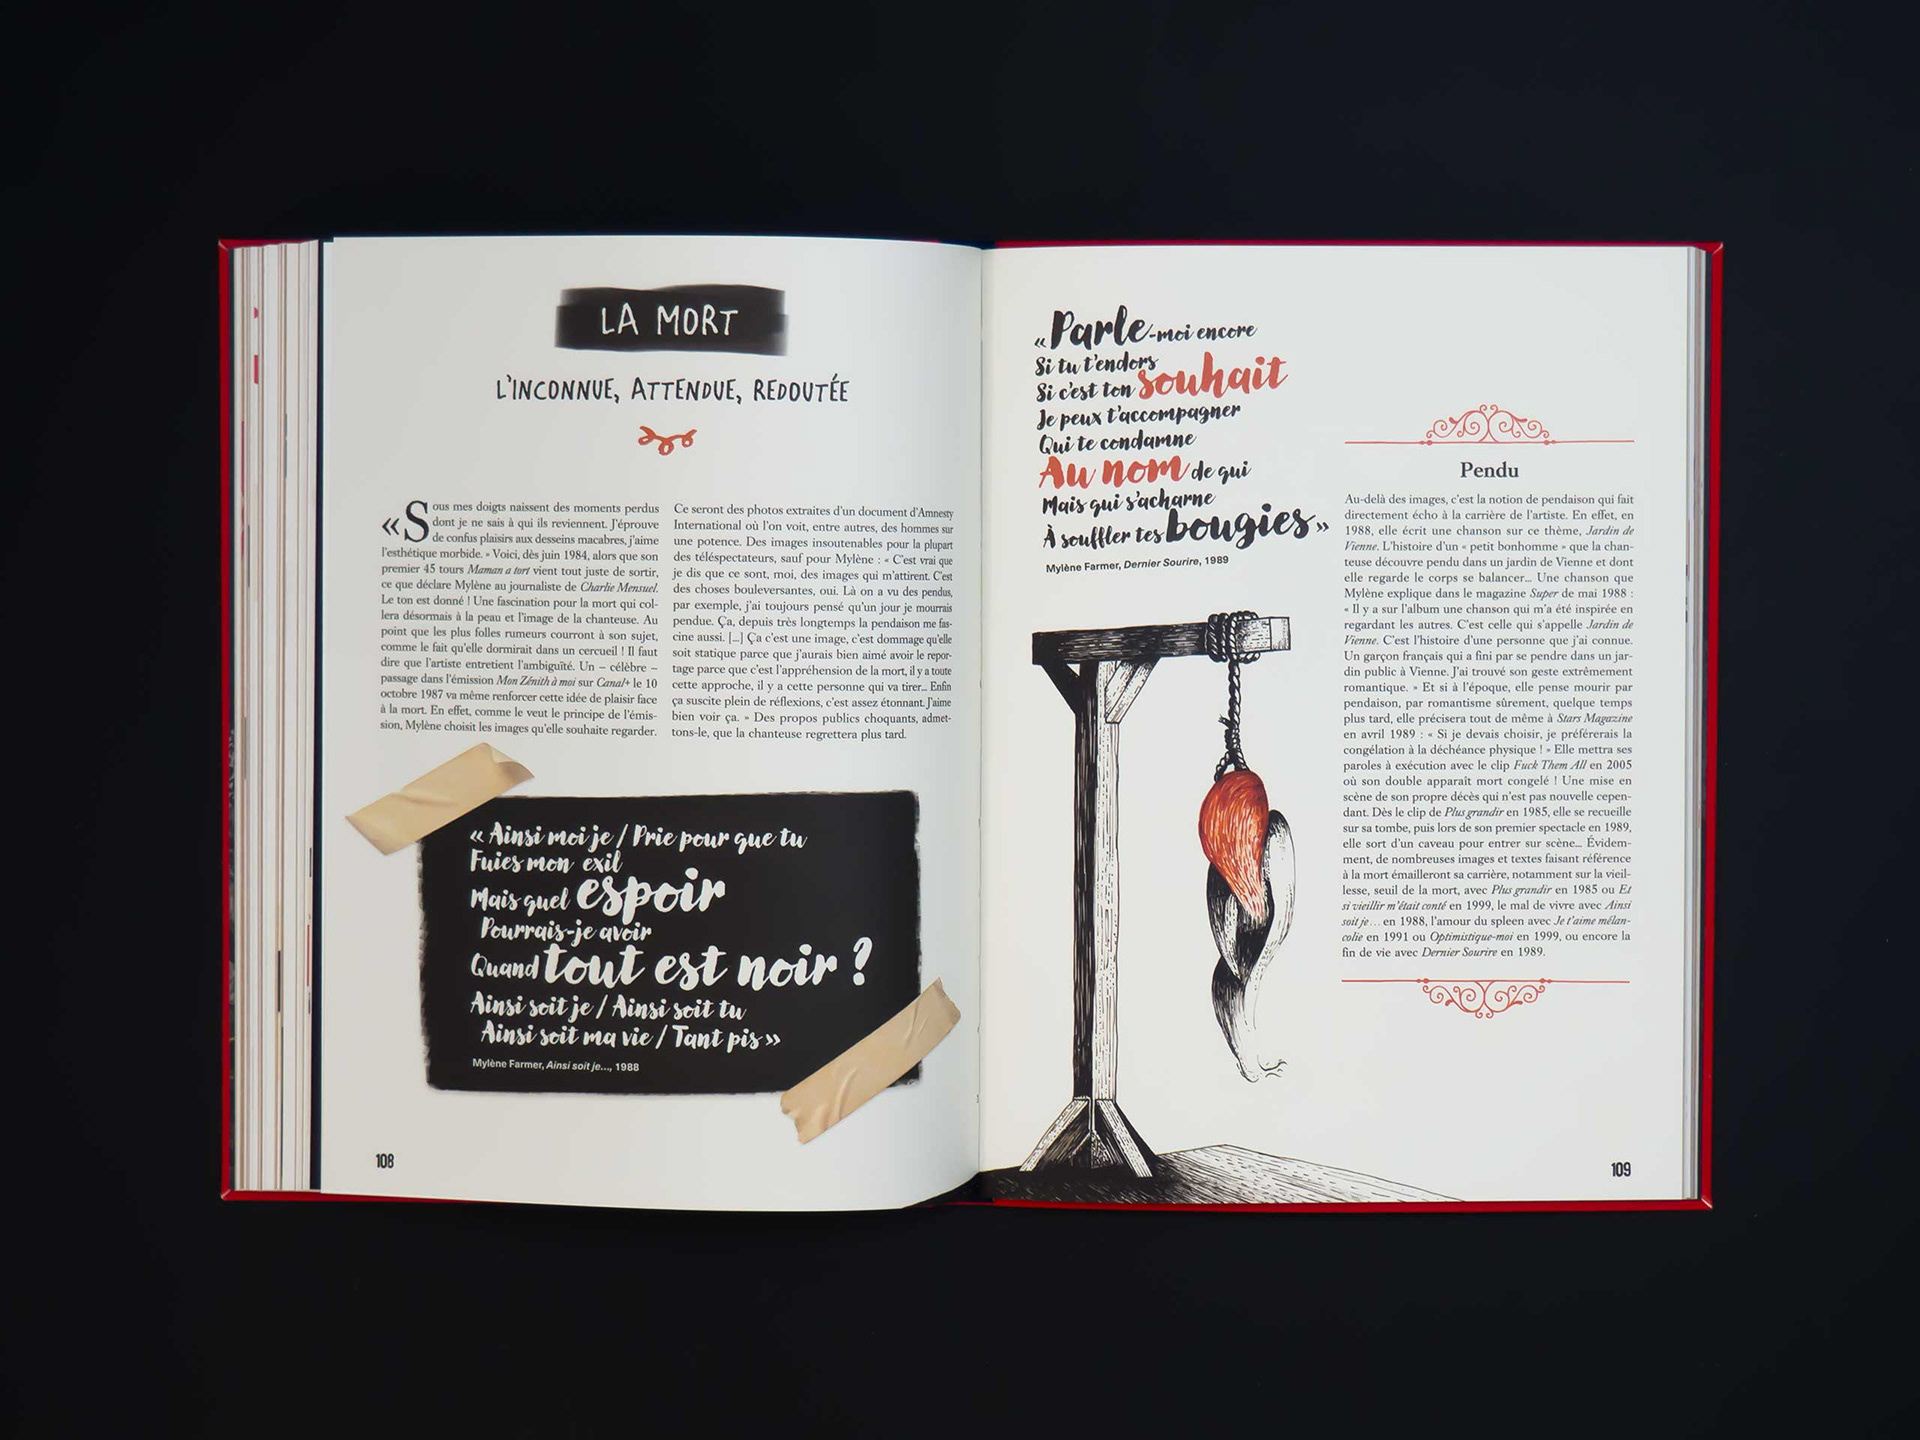 LA MORT
L'INCONNUE, ATTENDUE, REDOUTÉE
« Sous mes doigts naissent des moments perdus
dont je ne sais à qui ils reviennent. J'éprouve
de confus plaisirs aux desseins macabres, j'aime
l'esthétique morbide. » Voici, dès juin 1984, alors que son
premier 45 tours Maman a tort vient tout juste de sortir,
ce que déclare Mylène au journaliste de Charlie Mensuel.
Le ton est donné ! Une fascination pour la mort qui col-
lera désormais à la peau et l'image de la chanteuse. Au
point que les plus folles rumeurs courront à son sujet,
comme le fait qu'elle dormirait dans un cercueil ! Il faut
dire que l'artiste entretient l'ambiguïté. Un – célèbre –
passage dans l'émission Mon Zénith à moi sur Canal+ le 10
octobre 1987 va même renforcer cette idée de plaisir face
à la mort. En effet, comme le veut le principe de l'émis-
sion, Mylène choisit les images qu'elle souhaite regarder.
Ce seront des photos extraites d'un document d'Amnesty
International où l'on voit, entre autres, des hommes sur
une potence. Des images insoutenables pour la plupart
des téléspectateurs, sauf pour Mylène : « C'est vrai que
je dis que ce sont, moi, des images qui m'attirent. C'est
des choses bouleversantes, oui. Là on a vu des pendus,
par exemple, j'ai toujours pensé qu'un jour je mourrais
pendue. Ça, depuis très longtemps la pendaison me fas-
cine aussi. [...] Ça c'est une image, c'est dommage qu'elle
soit statique parce que j'aurais bien aimé avoir le repor-
tage parce que c'est l'appréhension de la mort, il y a toute
cette approche, il y a cette personne qui va tirer... Enfin
ça suscite plein de réflexions, c'est assez étonnant. J'aime
bien voir ça. » Des propos publics choquants, admet-
tons-le, que la chanteuse regrettera plus tard.
« Ainsi moi je / Prie pour que tu
Fuies mon exil
Mais quel espoir
Pourrais-je avoir
Quand tout est noir ?
Ainsi soit je / Ainsi soit tu
Ainsi soit ma vie / Tant pis »
Mylène Farmer, Ainsi soit je..., 1988
108
« Parle-moi encore
Si tu t'endors
Si c'est ton souhait
Je peux t'accompagner
Qui te condamne
Au nom de qui
Mais qui s'acharne
À souffler tes bougies »
Mylène Farmer, Dernier Sourire, 1989
Pendu
Au-delà des images, c'est la notion de pendaison qui fait
directement écho à la carrière de l'artiste. En effet, en
1988, elle écrit une chanson sur ce thème, Jardin de
Vienne. L'histoire d'un « petit bonhomme » que la chan-
teuse découvre pendu dans un jardin de Vienne et dont
elle regarde le corps se balancer... Une chanson que
Mylène explique dans le magazine Super de mai 1988 :
« Il y a sur l'album une chanson qui m'a été inspirée en
regardant les autres. C'est celle qui s'appelle Jardin de
Vienne. C'est l'histoire d'une personne que j'ai connue.
Un garçon français qui a fini par se pendre dans un jar-
din public à Vienne. J'ai trouvé son geste extrêmement
romantique. » Et si à l'époque, elle pense mourir par
pendaison, par romantisme sûrement, quelque temps
plus tard, elle précisera tout de même à Stars Magazine
en avril 1989 : « Si je devais choisir, je préférerais la
congélation à la déchéance physique ! » Elle mettra ses
paroles à exécution avec le clip Fuck Them All en 2005
où son double apparaît mort congelé ! Une mise en
scène de son propre décès qui n'est pas nouvelle cepen-
dant. Dès le clip de Plus grandir en 1985, elle se recueille
sur sa tombe, puis lors de son premier spectacle en 1989,
elle sort d'un caveau pour entrer sur scène... Évidem-
ment, de nombreuses images et textes faisant référence
à la mort émailleront sa carrière, notamment sur la vieil-
lesse, seuil de la mort, avec Plus grandir en 1985 ou Et
si vieillir m'était conté en 1999, le mal de vivre avec Ainsi
soit je... en 1988, l'amour du spleen avec Je t'aime mélan-
colie en 1991 ou Optimistique-moi en 1999, ou encore la
fin de vie avec Dernier Sourire en 1989.
109